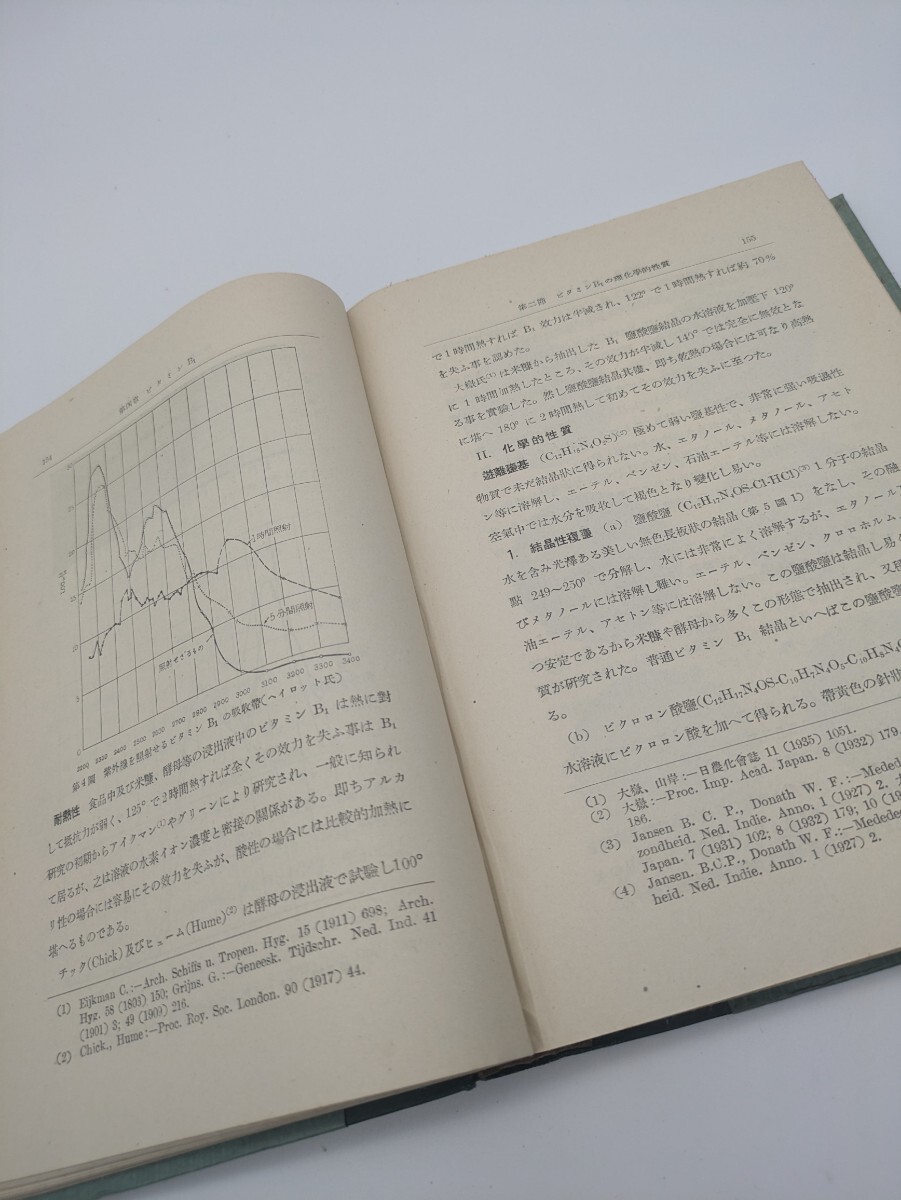 154
第四章 ビタミン B₁
2時間照射
5分間照射
照射せざるもの
2200 2300 2400 2500 2600 2700 2800 2900 3000 3100 3200 3300 3400
第4圖 紫外線を照射せるビタミン B₁ の吸收帶(ヘイロット氏)
耐熱性 食品中及び米糠、酵母等の浸出液中のビタミン B₁ は熱に對
して抵抗力が弱く、125° で2時間熱すれば全くその效力を失ふ事は B₁
研究の初期からアイクマン⁽¹⁾やグリーンにより研究され、一般に知られ
て居るが、之は溶液の水素イオン濃度と密接の關係がある。即ちアルカ
リ性の場合には容易にその效力を失ふが、酸性の場合には比較的加熱に
堪へるものである。
チック(Chick)及びヒューム(Hume)⁽²⁾は酵母の浸出液で試驗し100°
(1) Eijkman C.:—Arch. Schiffs u. Tropen. Hyg. 15 (1911) 698; Arch.
Hyg. 58 (1803) 150; Grijns. G.:—Geneesk. Tijdschr. Ned. Ind. 41
(1901) 3; 49 (1909) 216.
(2) Chick., Hume:—Proc. Roy. Soc. London. 90 (1917) 44.
第二節 ビタミンB₁の理化學的性質
155
で1時間熱すれば B₁ 效力は半減され、122° で1時間熱すれば約 70%
を失ふ事を認めた。
大嶽氏⁽¹⁾は米糠から抽出した B₁ 鹽酸鹽結晶の水溶液を加壓下 120°
に 1 時間加熱したところ、その效力が半減し 140° では完全に無效とな
る事を實驗した。然し鹽酸鹽結晶其儘、即ち乾熱の場合には可なり高熱
に堪へ 180° に 2 時間熱して初めてその效力を失ふに至つた。
II. 化學的性質
遊離鹽基 (C₁₂H₁₆N₄O₂S)⁽²⁾ 極めて弱い鹽基性で、非常に强い吸濕性
物質で未だ結晶狀に得られない。水、エタノール、メタノール、アセト
ン等に溶解し、エーテル、ベンゼン、石油エーテル等には溶解しない。
空氣中では水分を吸收して褐色となり變化し易い。
1. 結晶性複鹽 (a) 鹽酸鹽 (C₁₂H₁₇N₄OS·Cl·HCl)⁽³⁾ 1 分子の結晶
水を含み光澤ある美しい無色長板狀の結晶(第 5 圖 1)をなし、その融
點 249〜250° で分解し、水には非常によく溶解するが、エタノール
びメタノールには溶解し難い。エーテル、ベンゼン、クロロホルム、
油エーテル、アセトン等には溶解しない。この鹽酸鹽は結晶し易
つ安定であるから米糠や酵母から多くこの形態で抽出され、又
質が研究された。普通ビタミン B₁ 結晶といへばこの鹽酸鹽
る。
(b) ピクロロン酸鹽(C₁₂H₁₇N₄OS·C₁₀H₇N₄O₅·C₁₀H₈N₄O
水溶液にピクロロン酸を加へて得られる。帶黃色の針狀
(1) 大嶽、山岸:—日農化會誌 11 (1935) 1051.
(2) 大嶽:—Proc. Imp. Acad. Japan. 8 (1932) 179.
186.
(3) Jansen B. C. P., Donath W. F.:—Meded
zondheid. Ned. Indie. Anno. 1 (1927) 2. 大
Japan. 7 (1931) 102; 8 (1932) 179; 10 (19
(4) Jansen. B.C.P., Donath W. F.:—Medede
heid. Ned. Indie. Anno. 1 (1927) 2.